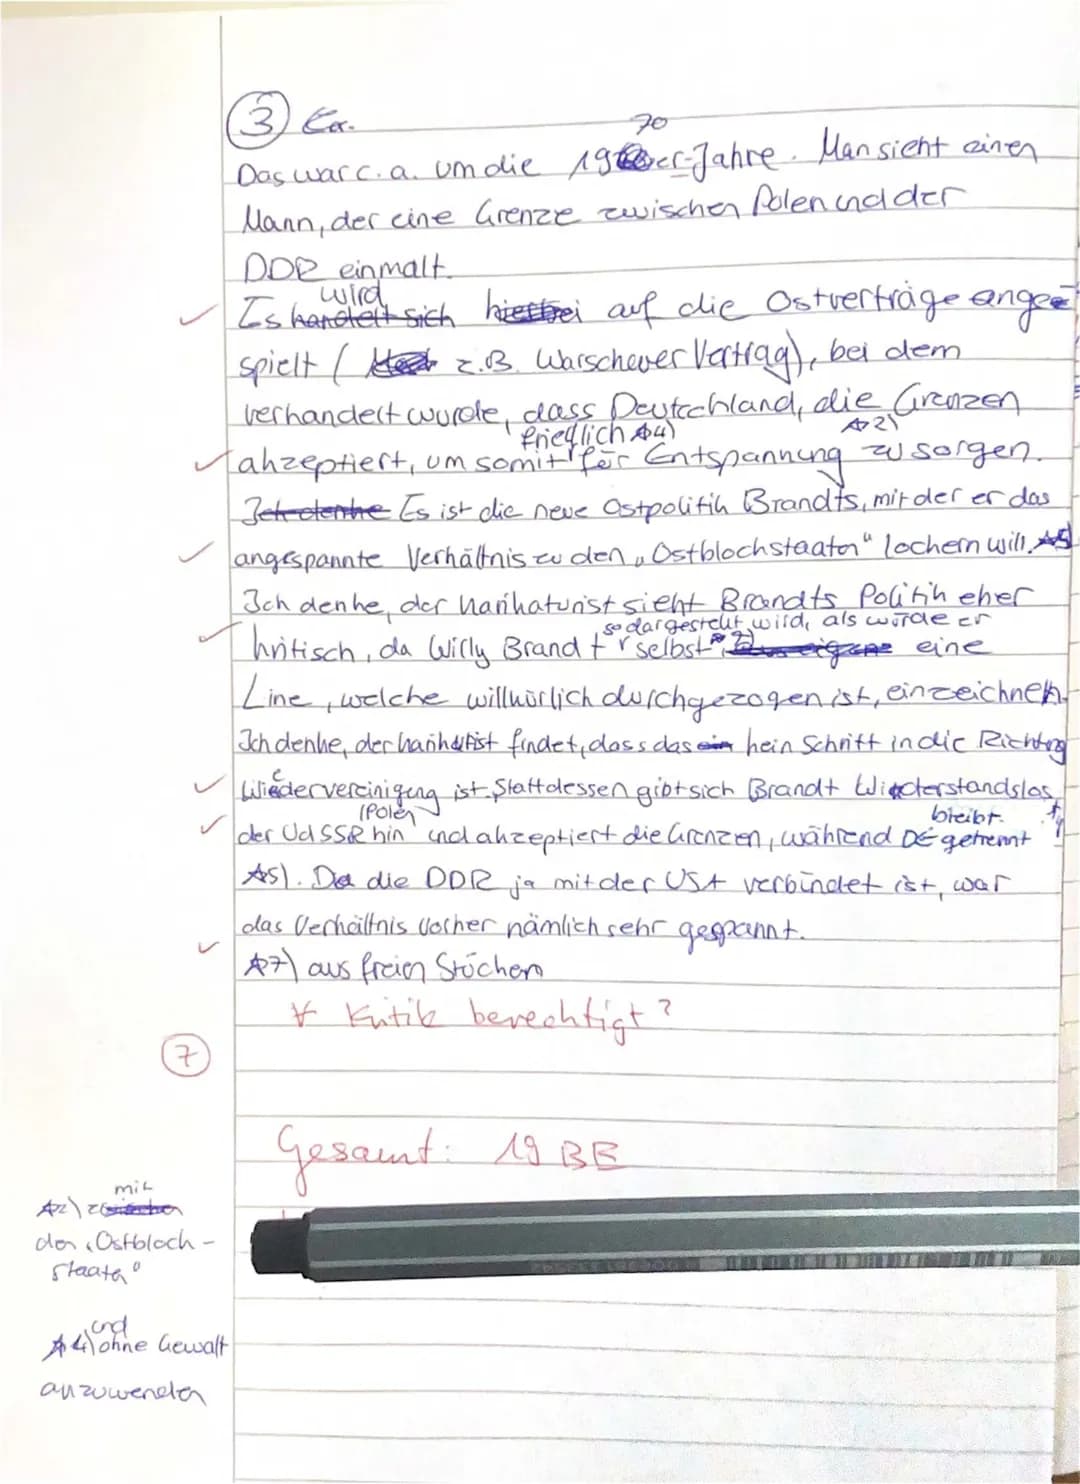 3) Ex.
70
Das war c.a. um die 19er-Jahre. Man sieht einen
Mann, der eine Grenze zwischen Polen und der
DDR einmalt.
wird
Es handelt sich hierbei auf die Ostverträge ange-
spielt ( z.B. Warschauer Vertrag), bei dem
verhandelt wurde, dass Deutschland, die Grenzen
friedlich A4) A2)
akzeptiert, um somit für Entspannung zu sorgen.
Ich denke Es ist die neue Ostpolitik Brandts, mit der er das
angespannte Verhältnis zu den „Ostblockstaaten" lockern will. A5
Ich denke, der Karikaturist sieht Brandts Politik eher
so dargestellt wird, als würde er
kritisch, da Willy Brandt selbst eine
Line, welche willkürlich durchgezogen ist, einzeichnen.
Ich denke, der Karikatist findet, dass das ein kein Schritt in die Richtng
Wiedervereinigung ist. Stattdessen gibt sich Brandt Wiederstandslos
(Polen bleibt.
der UdSSR hin und akzeptiert die Grenzen, während DE getrennt
A5). Da die DDR ja mit der USA verbündet ist, war
das Verhältnis vorher nämlich sehr gespannt.
A7) aus freien Stücken
∀ Kritik berechtigt?
7
Gesamt: 19 BE
mit
A2) zwischen
den „Ostblock-
staaten"
und
A4) ohne Gewalt
anzuwenden